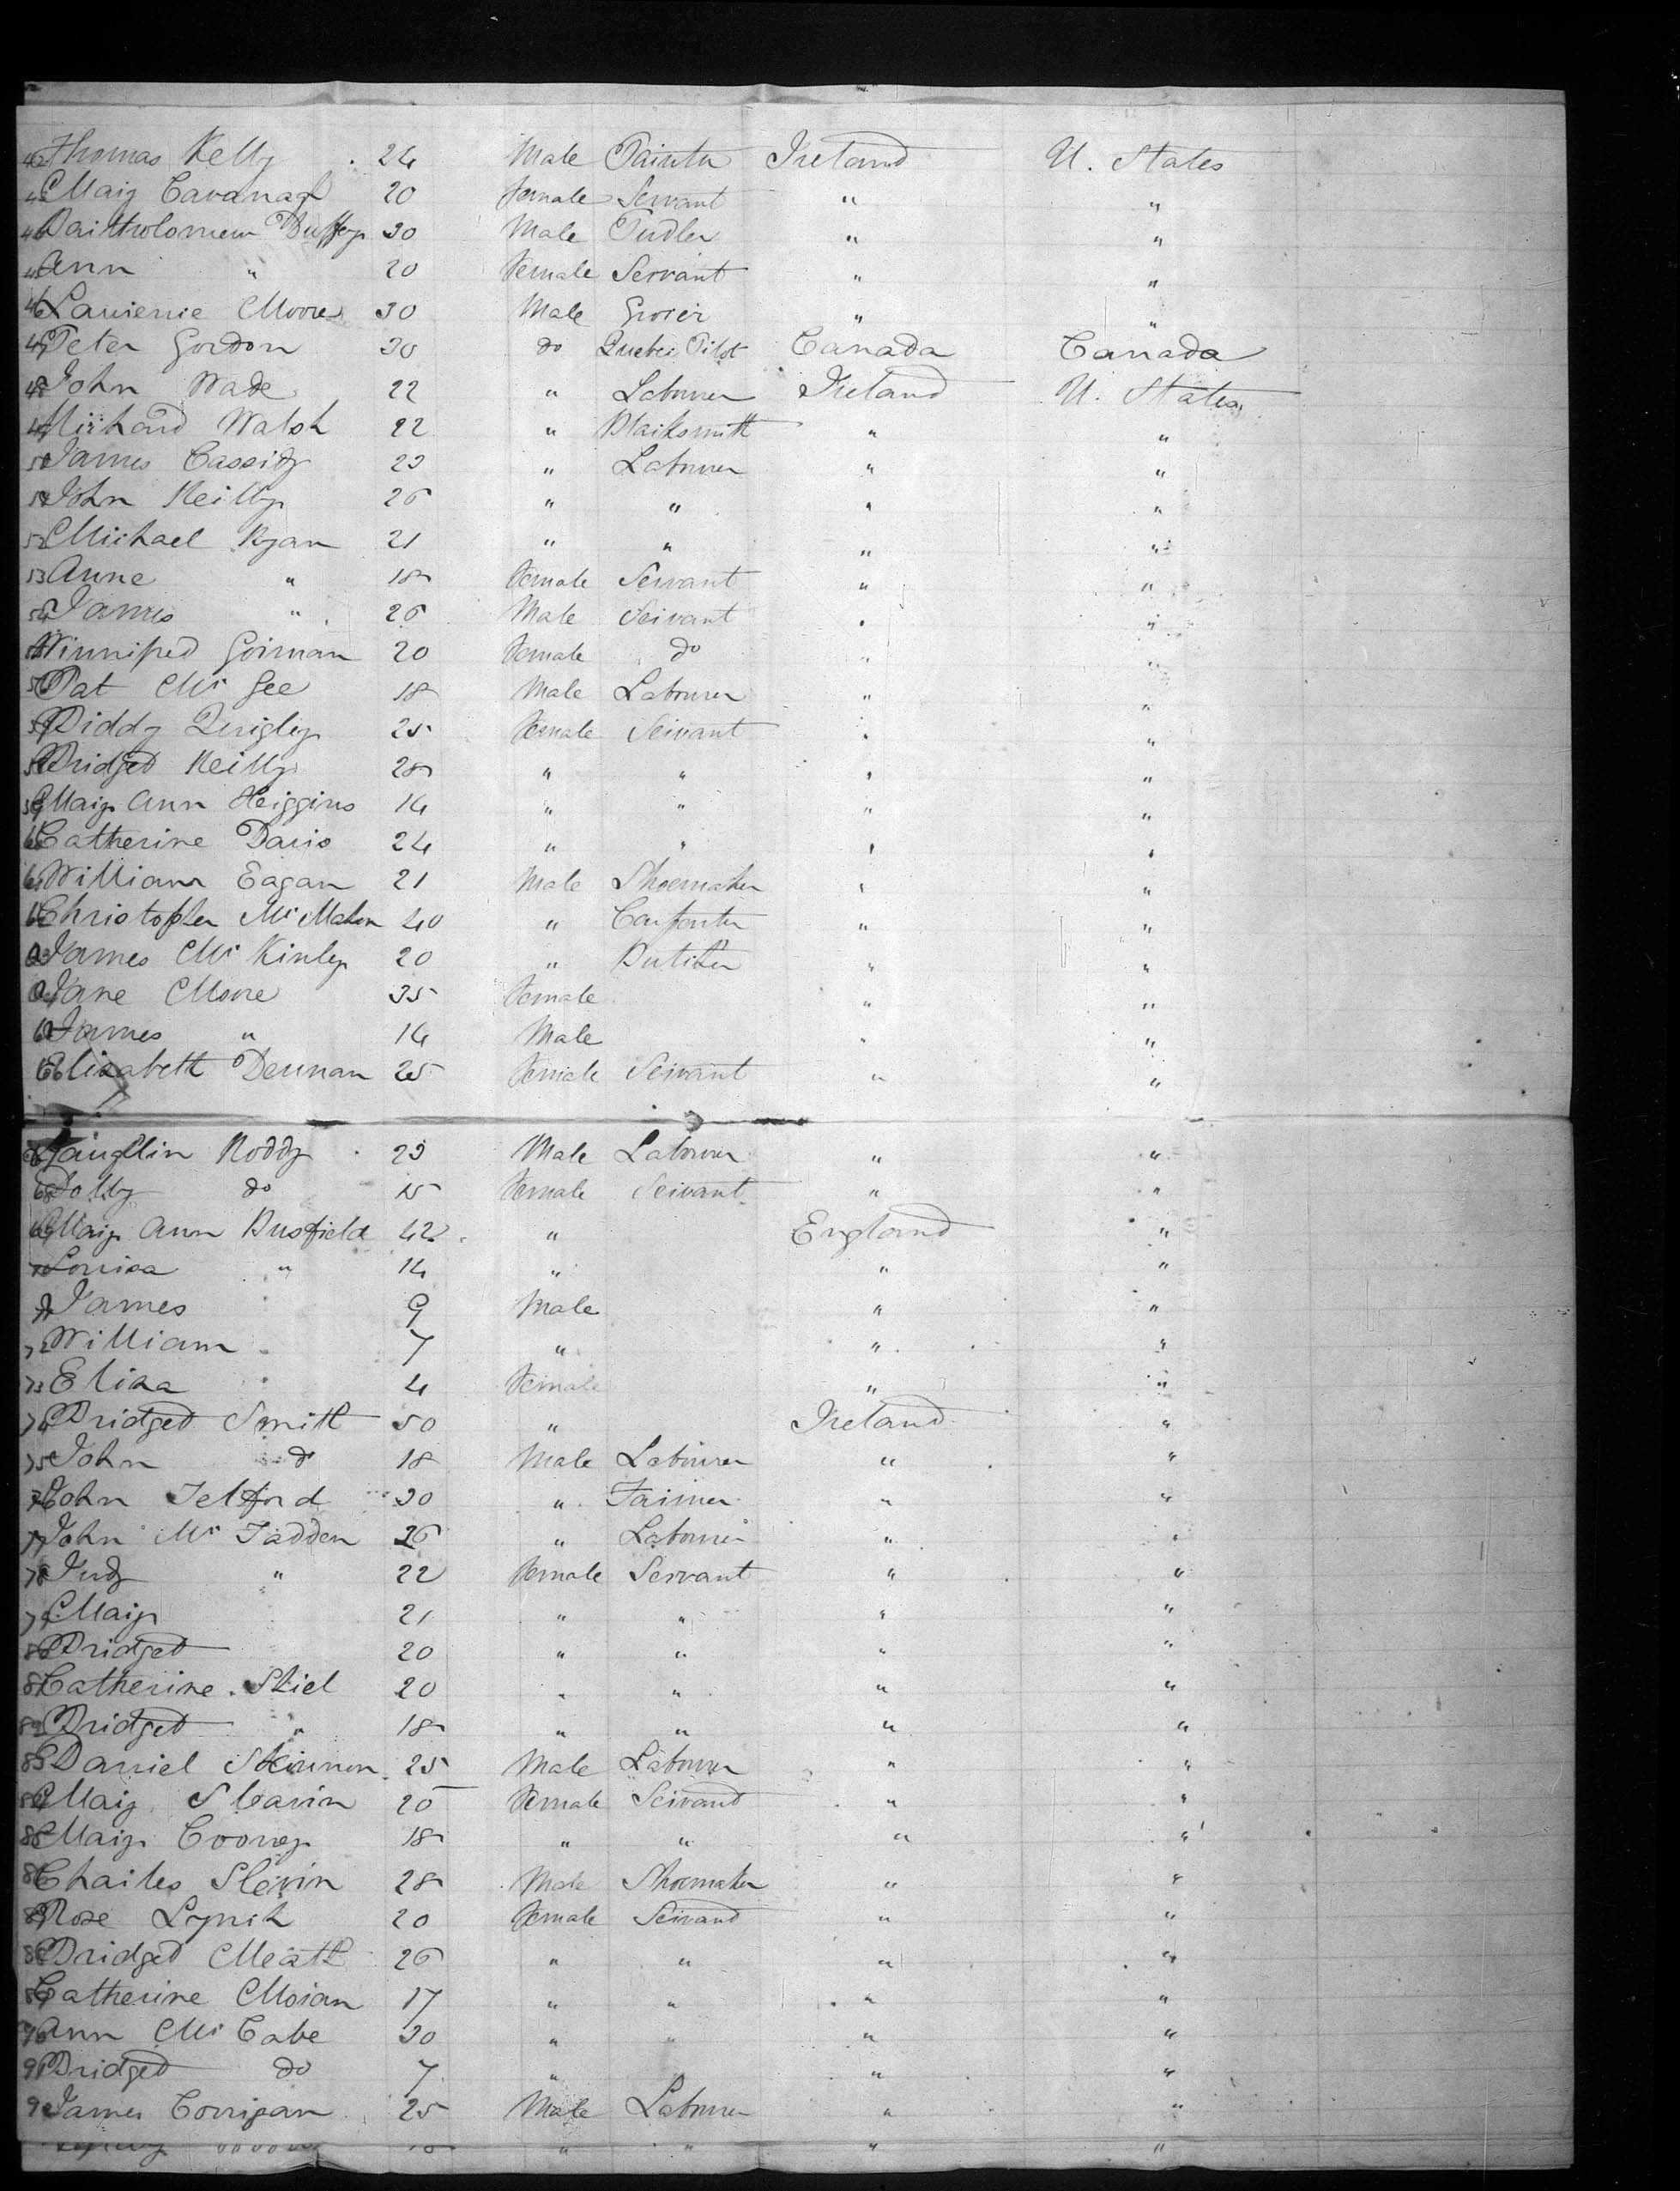 42 Thomas Kelly 24 Male Painter Ireland U. States
43 Mary Cavanagh 20 Female Servant " "
44 Bartholomew Duffey 30 Male Pedler " "
45 Ann " 20 Female Servant " "
46 Lawrence Moore 30 Male Grocer " "
47 Peter Gordon 30 do Quebec Pilot Canada Canada
48 John Wade 22 " Labourer Ireland U. States
49 Richard Walsh 22 " Blacksmith " "
50 James Cassidy 23 " Labourer " "
51 John Reilly 26 " " " "
52 Michael Ryan 21 " " " "
53 Anne " 18 Female Servant " "
54 James " 26 Male Servant " "
55 Winnifred Gorman 20 Female do " "
56 Pat Mc Gee 18 Male Labourer " "
57 Biddy Quigley 25 Female Servant " "
58 Bridged Reilly 28 " " " "
59 Mary Ann Heiggins 14 " " " "
60 Catherine Davis 24 " " " "
61 William Eagan 21 Male Shoemaker " "
62 Christopher Mc Mahon 40 " Carpenter " "
63 James Mc Kinley 20 " Butcher " "
64 Jane Moore 35 Female " "
65 James " 14 Male " "
66 Elizabeth Dennan 25 Female Servant " "
67 Laughlin Roddy 23 Male Labourer " "
68 Dolly do 15 Female Servant " "
69 Mary Ann Busfield 42 " England "
70 Louisa " 14 " " "
71 James 9 Male " "
72 William 7 " " "
73 Eliza 4 Female " "
74 Bridged Smith 50 " Ireland "
75 John do 18 Male Labourer " "
76 John Telford 30 " Farmer " "
77 John Mc Fadden 26 " Labourer " "
78 Judy " 22 Female Servant " "
79 Mary 21 " " " "
80 Bridged 20 " " " "
81 Catherine Shiel 20 " " " "
82 Bridged " 18 " " " "
83 Daniel Skinnon 25 Male Labourer " "
84 Mary Slavin 20 Female Servand " "
85 Mary Cooney 18 " " " "
86 Charles Slevin 28 Male Shoemaker " "
87 Rose Lynch 20 Female Servand " "
88 Bridged Meath 26 " " " "
89 Catherine Moran 17 " " " "
90 Ann Mc Cabe 30 " " " "
91 Bridged do 7 " " "
92 James Corrigan 25 Male Labourer " "
" " " "